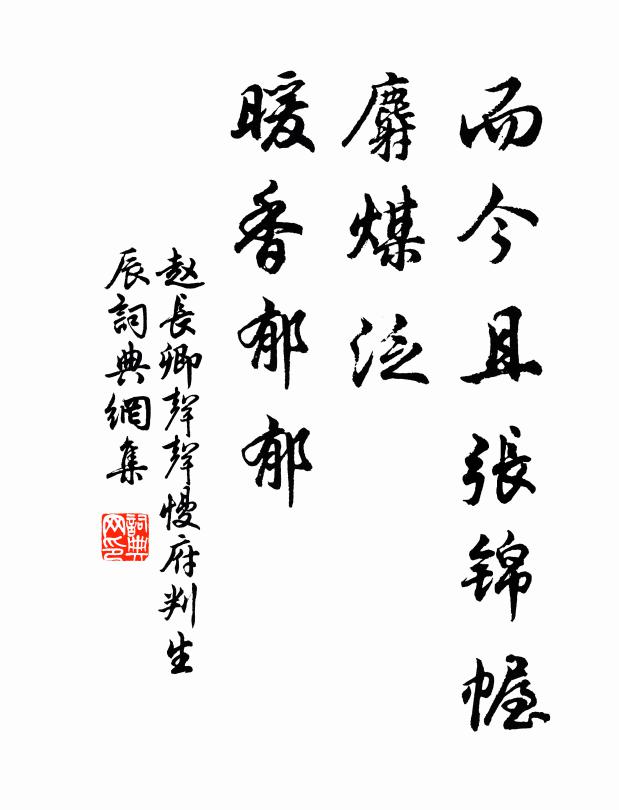 而今且張錦幄
麝煤泛
暖香郁郁
赵長卿聲聲慢府判生
辰詞典網集
詞典
网印